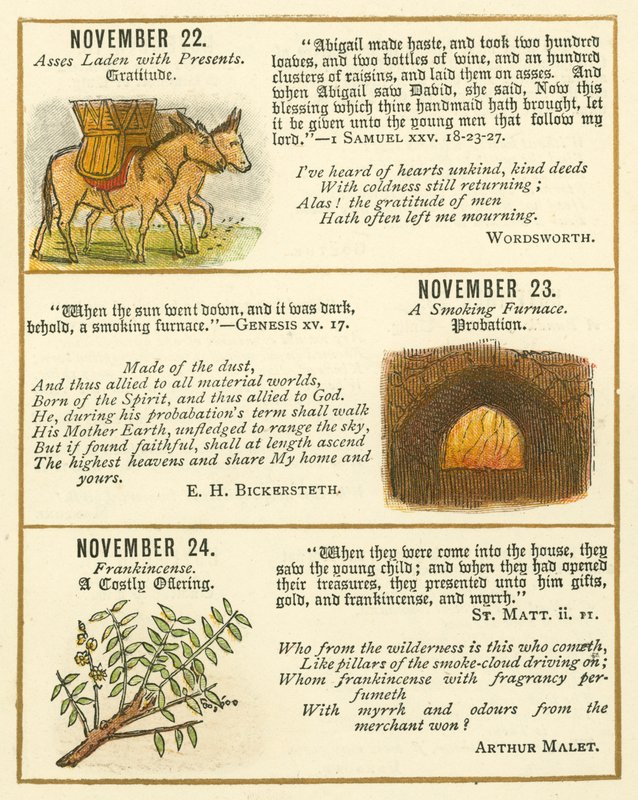 NOVEMBER 22.
Asses Laden with Presents.
Gratitude.
"Abigail made haste, and took two hundred
loaves, and two bottles of wine, and an hundred
clusters of raisins, and laid them on asses. And
when Abigail saw David, she said, Now this
blessing which thine handmaid hath brought, let
it be given unto the young men that follow my
lord."—1 SAMUEL xxv. 18-23-27.
I've heard of hearts unkind, kind deeds
With coldness still returning;
Alas! the gratitude of men
Hath often left me mourning.
WORDSWORTH.
NOVEMBER 23.
A Smoking Furnace.
Probation.
"When the sun went down, and it was dark,
behold, a smoking furnace."—GENESIS xv. 17.
Made of the dust,
And thus allied to all material worlds,
Born of the Spirit, and thus allied to God.
He, during his probabation's term shall walk
His Mother Earth, unfledged to range the sky,
But if found faithful, shall at length ascend
The highest heavens and share My home and
yours.
E. H. BICKERSTETH.
NOVEMBER 24.
Frankincense.
A Costly Offering.
"When they were come into the house, they
saw the young child; and when they had opened
their treasures, they presented unto him gifts,
gold, and frankincense, and myrrh."
ST. MATT. ii. 11.
Who from the wilderness is this who cometh,
Like pillars of the smoke-cloud driving on;
Whom frankincense with fragrancy per-
fumeth
With myrrh and odours from the
merchant won?
ARTHUR MALET.